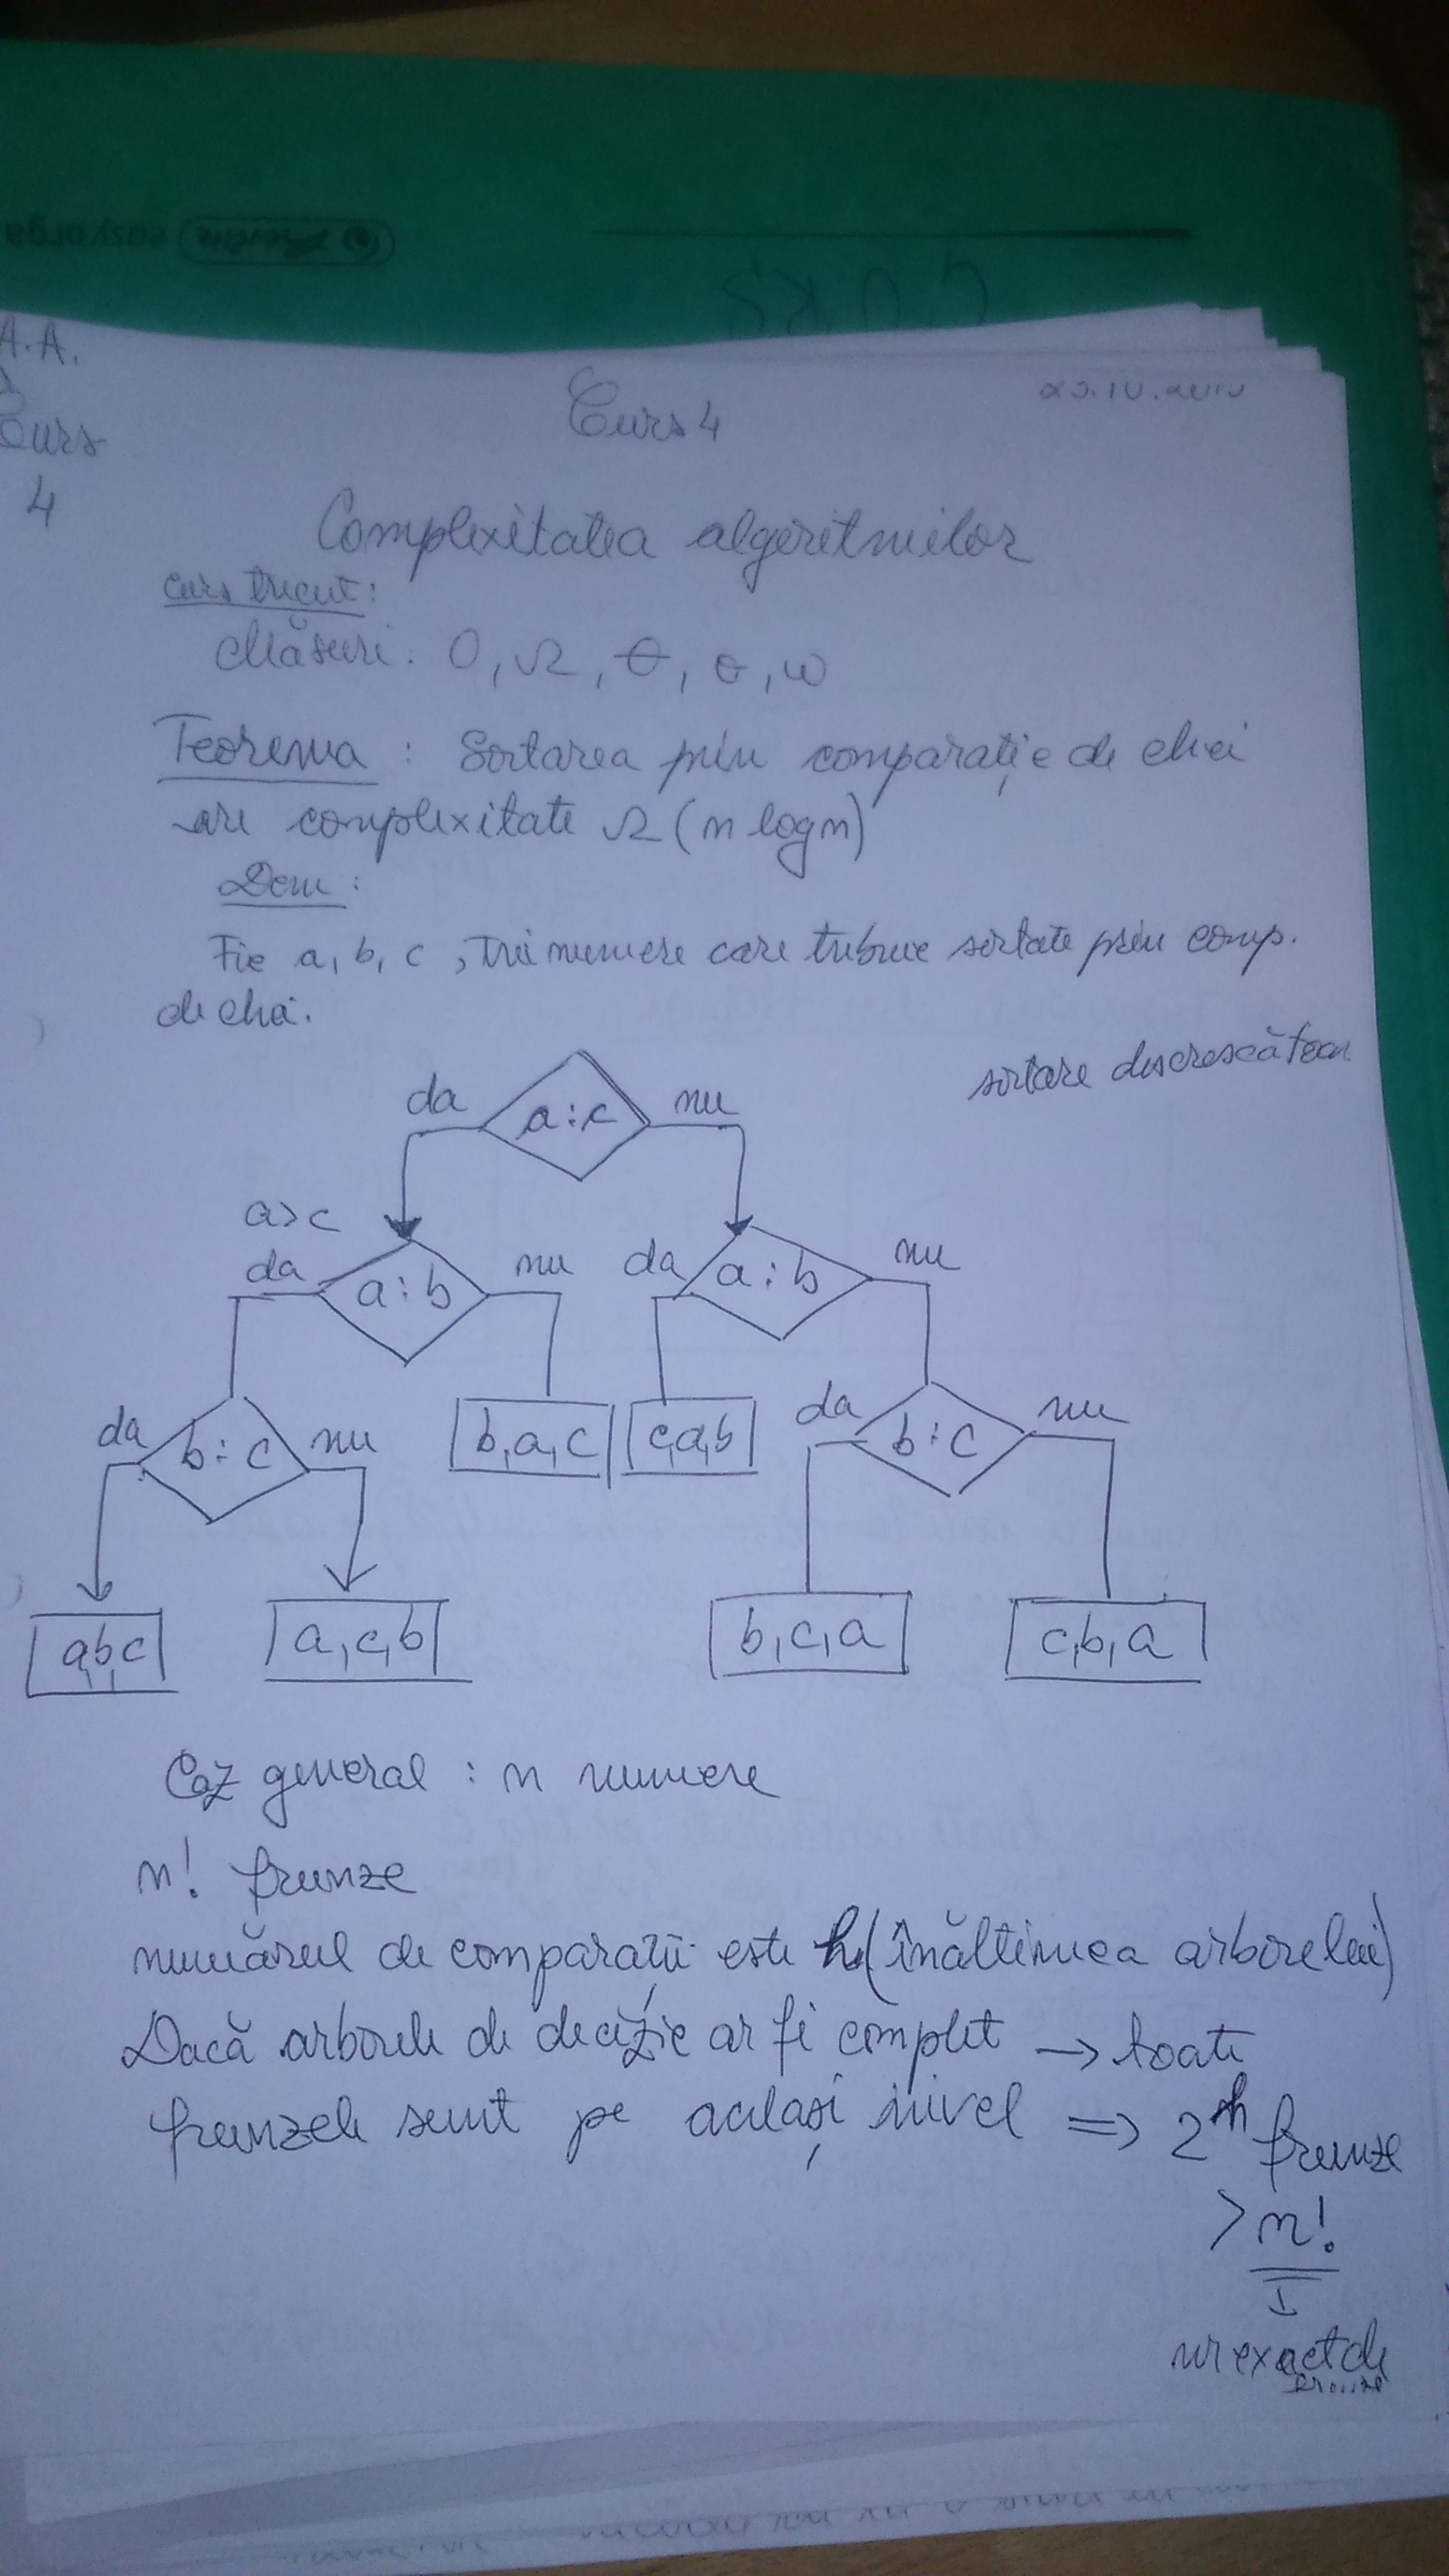 easy orga
A.A.
Curs
4
Curs 4
Complexitatea algoritmilor
curs trecut:
Măsuri: O, Ω, Θ, o, ω
Teorema : Sortarea prin comparație de chei
are complexitate Ω(n log n)
Dem :
Fie a, b, c, trei numere care trebuie sortate prin comp.
de chei.
sortare descrescătoare
da a:c nu
a>c
da a:b nu da a:b nu
da b:c nu b,a,c c,a,b da b:c nu
a,b,c a,c,b b,c,a c,b,a
Caz general : n numere
n! frunze
numărul de comparații este h (înălțimea arborelui)
Dacă arborele de decizie ar fi complet → toate
frunzele sunt pe același nivel => 2^h frunze
> n!
↓
nr exact de
frunze